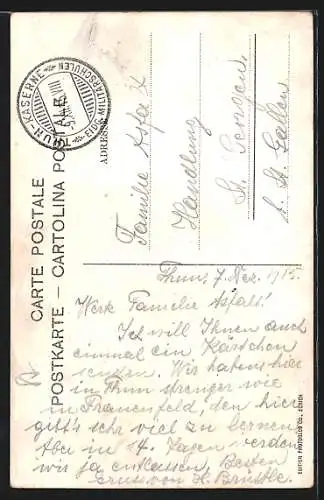 CARTE POSTALE
POSTKARTE — CARTOLINA POSTALE
THUN-KASERNE
EIDG. MILITÄRSCHULEN
ADRESSE
Familie Asfalt
Handlung
St. Georgen
b. St. Gallen
Thun, 7. Dez. 1915.
Werte Familie Asfalt!
Ich will Ihnen auch
einmal ein Kärtchen
senden. Wir habens hier
in Thun strenger wie
in Frauenfeld, den hier
gitt's sehr viel zu lernen
Aber in 14 Tagen werden
wir ja entlassen, Besten
Gruss von H. Brüstle.
EDITION PHOTOGLOB CO., ZÜRICH